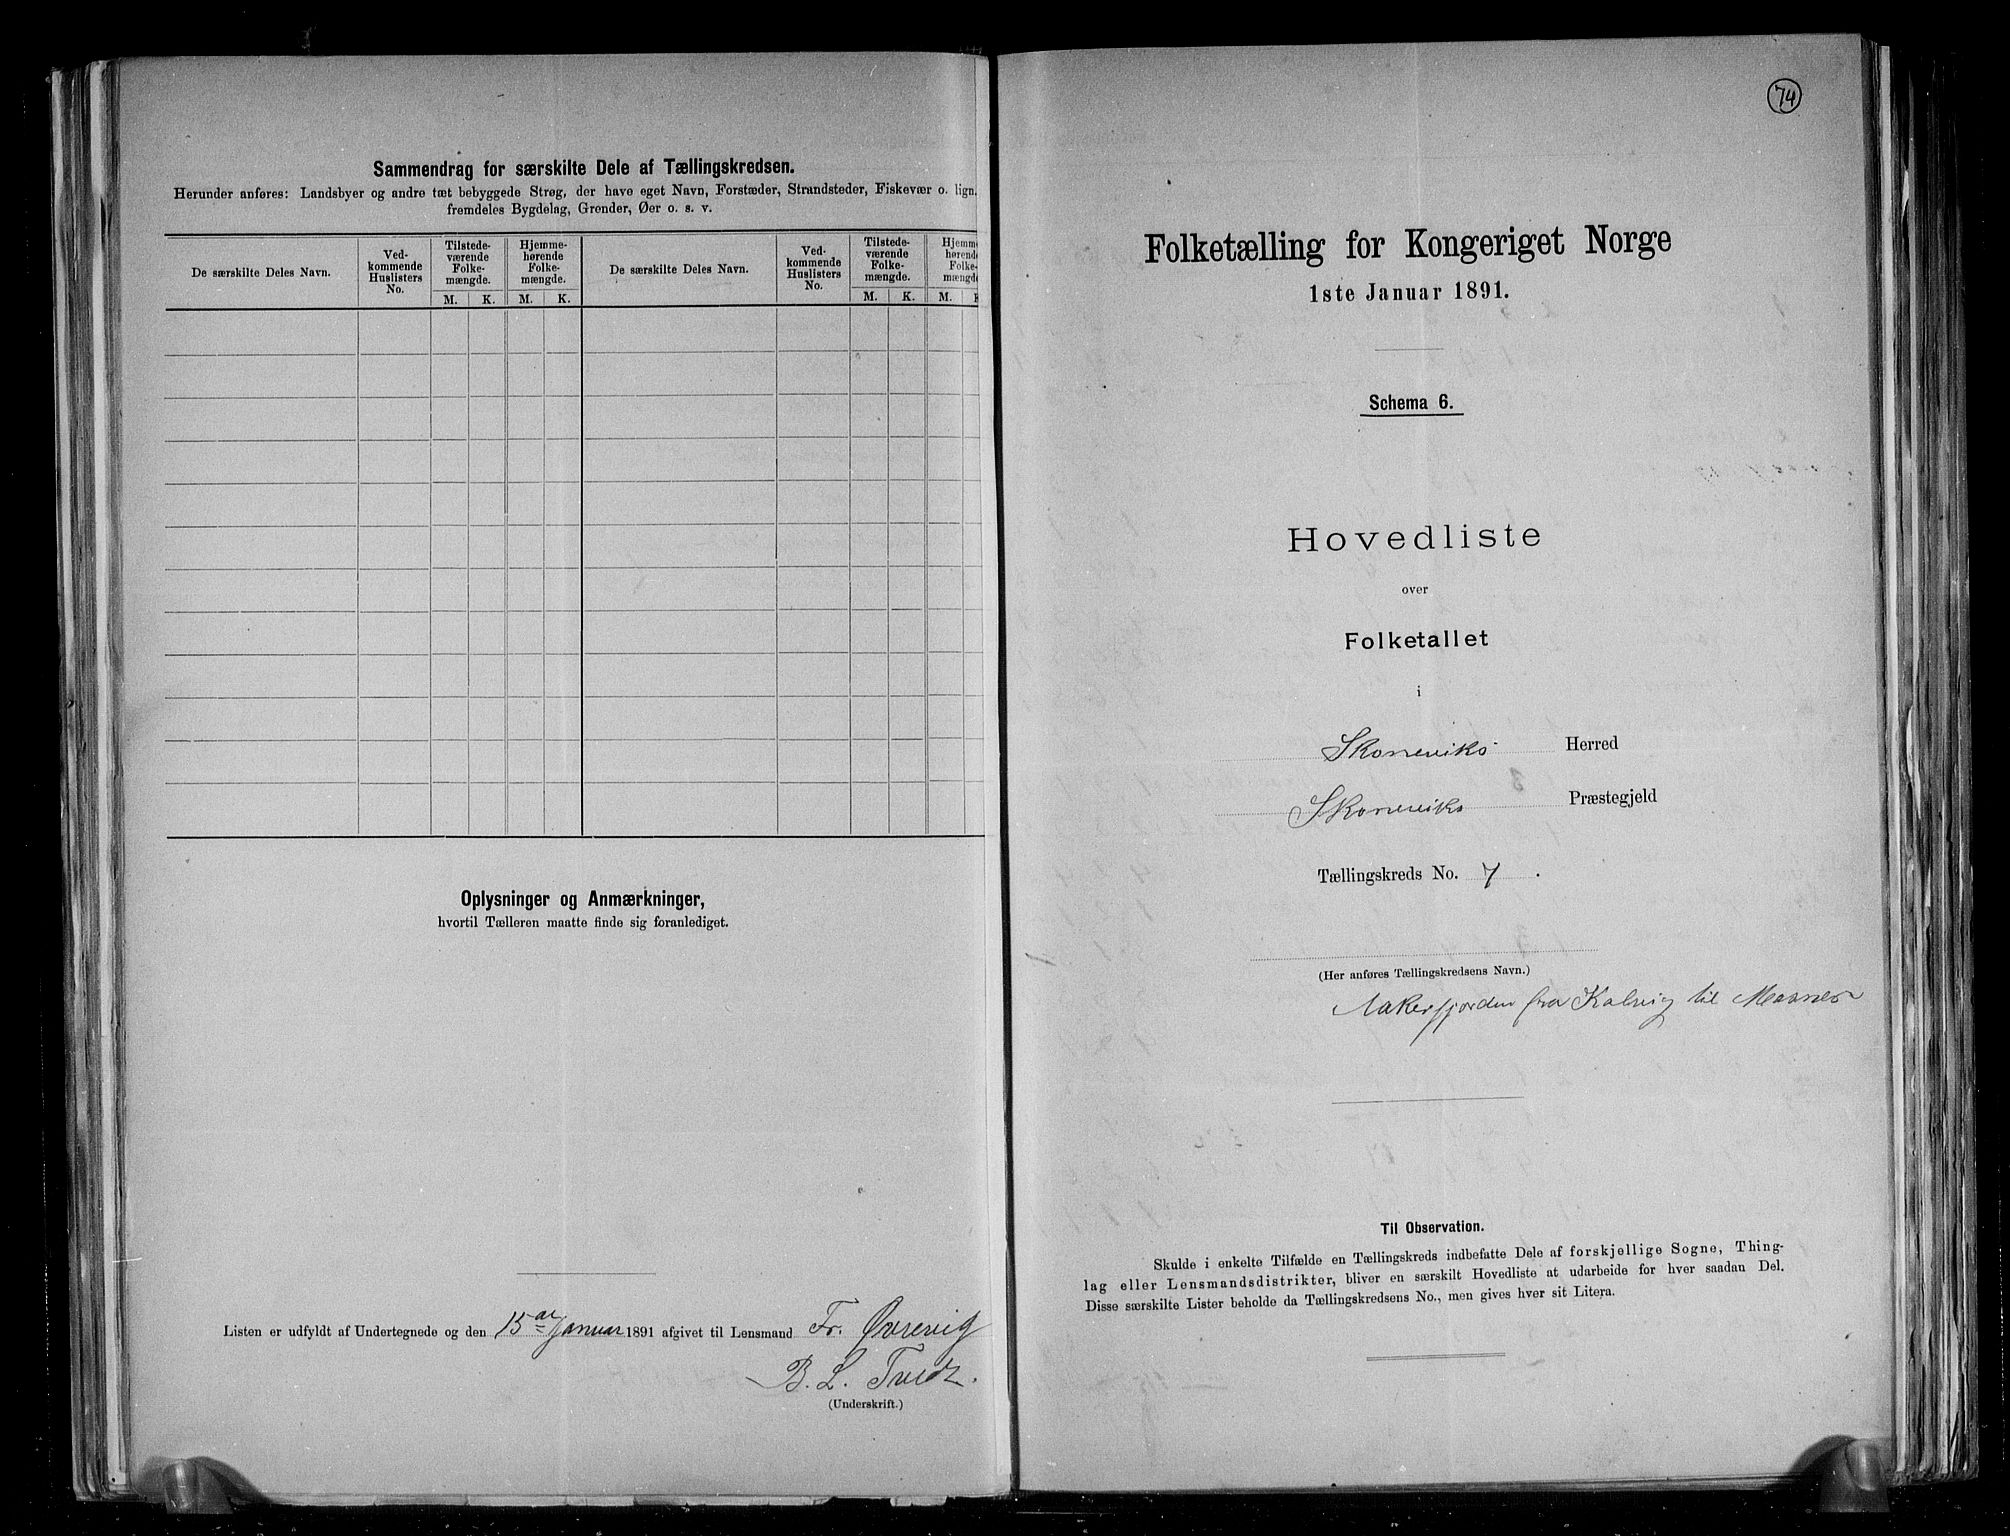 Sammendrag for særskilte Dele af Tællingskredsen.
Herunder anføres: Landsbyer og andre tæt bebyggede Strøg, der have eget Navn, Forstæder, Strandsteder, Fiskevær o. lign.
fremdeles Bygdelag, Grender, Øer o. s. v.
De særskilte Deles Navn.
Ved-
kommende
Huslisters
No.
Tilstede-
værende
Folke-
mængde.
M. K.
Hjemme-
hørende
Folke-
mængde.
M. K.
De særskilte Deles Navn.
Ved-
kommende
Huslisters
No.
Tilstede-
værende
Folke-
mængde.
M. K.
Hjemm
hørend
Folke-
mængd
M. K
Oplysninger og Anmærkninger,
hvortil Tælleren maatte finde sig foranlediget.
Listen er udfyldt af Undertegnede og den 15de Januar 1891 afgivet til Lensmand Fr. Øvrevig
B. L. Tvedt.
(Underskrift.)
74
Folketælling for Kongeriget Norge
1ste Januar 1891.
Schema 6.
Hovedliste
over
Folketallet
i
Skoneviks Herred
Skoneviks Præstegjeld
Tællingskreds No. 7.
(Her anføres Tællingskredsens Navn.)
Aakerfjorden fra Kalvig til Mosnes
Til Observation.
Skulde i enkelte Tilfælde en Tællingskreds indbefatte Dele af forskjellige Sogne, Thing-
lag eller Lensmandsdistrikter, bliver en særskilt Hovedliste at udarbeide for hver saadan Del.
Disse særskilte Lister beholde da Tællingskredsens No., men gives hver sit Litera.